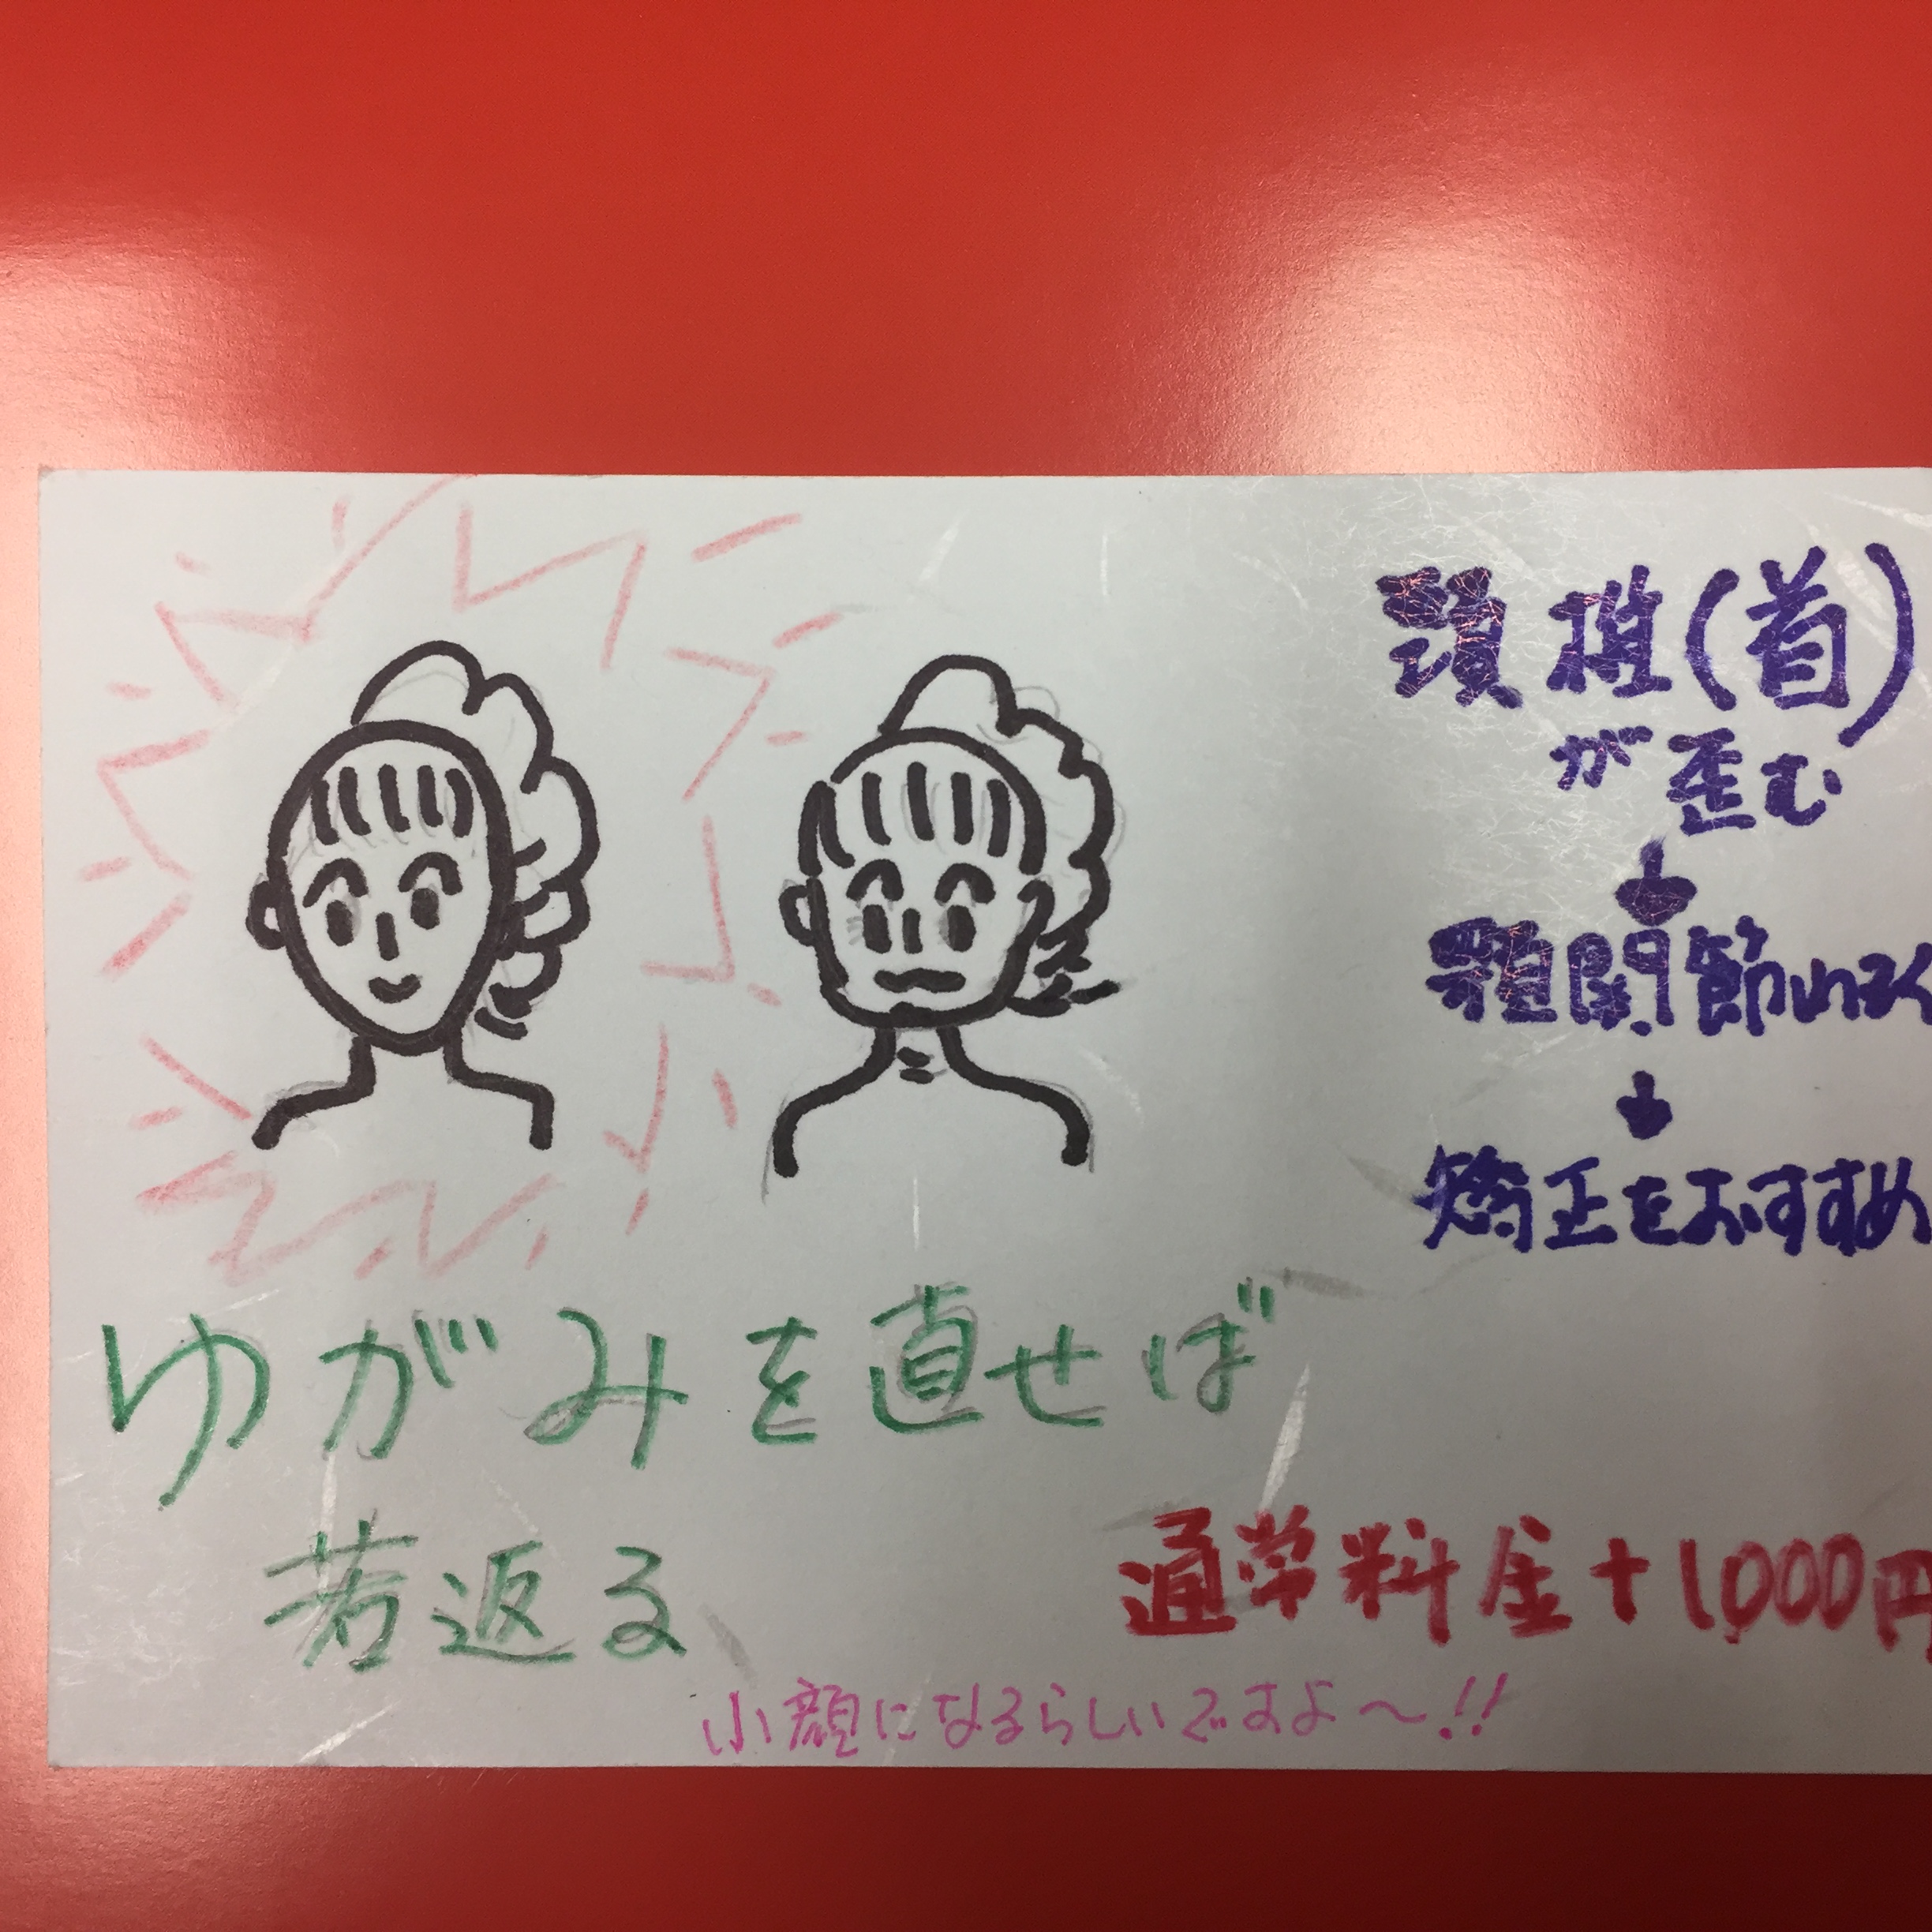 頚椎(首)
が歪む
顎関節ゆるく
矯正をおすすめ
ゆがみを直せば
若返る
通常料金+1,000円
小顔になるらしいですよ〜!!